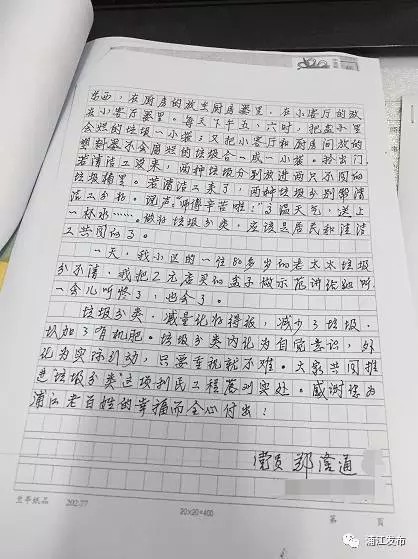 东西，在厨房的放至厨房器里，在小客厅的放
在小客厅器里。每天下午五、六时，把盒子里
会烂的垃圾一小袋；又把小客厅和厨房间放的
塑料器不会腐烂的垃圾合一成一小袋。拎出门，
若清洁工没来，两种垃圾分别放进两只不同的
垃圾桶里。若清洁工来了，两种垃圾分别帮清
洁工分好。调声“师傅辛苦啦！”高温天气，送上
一杯水……。做好垃圾分类，应该是居民和清洁
工共同的了。
一天，我小区的一位80多岁的老太太垃圾
分不清，我把2元店买的盒子做示范讲给她听
一会儿听懂了，也会了。
垃圾分类，减量化好得很，减少了垃圾，
增加了有机肥。垃圾分类内化为自觉意识，外
化为实际行动，只要重视就不难。大家共同推
进“垃圾分类”这项利民工程落到实处。感谢您为
浦江老百姓的幸福而全心付出！
党员 郑隆通
兰亭纸品 202-77
20×20=400
第 页
浦江发布